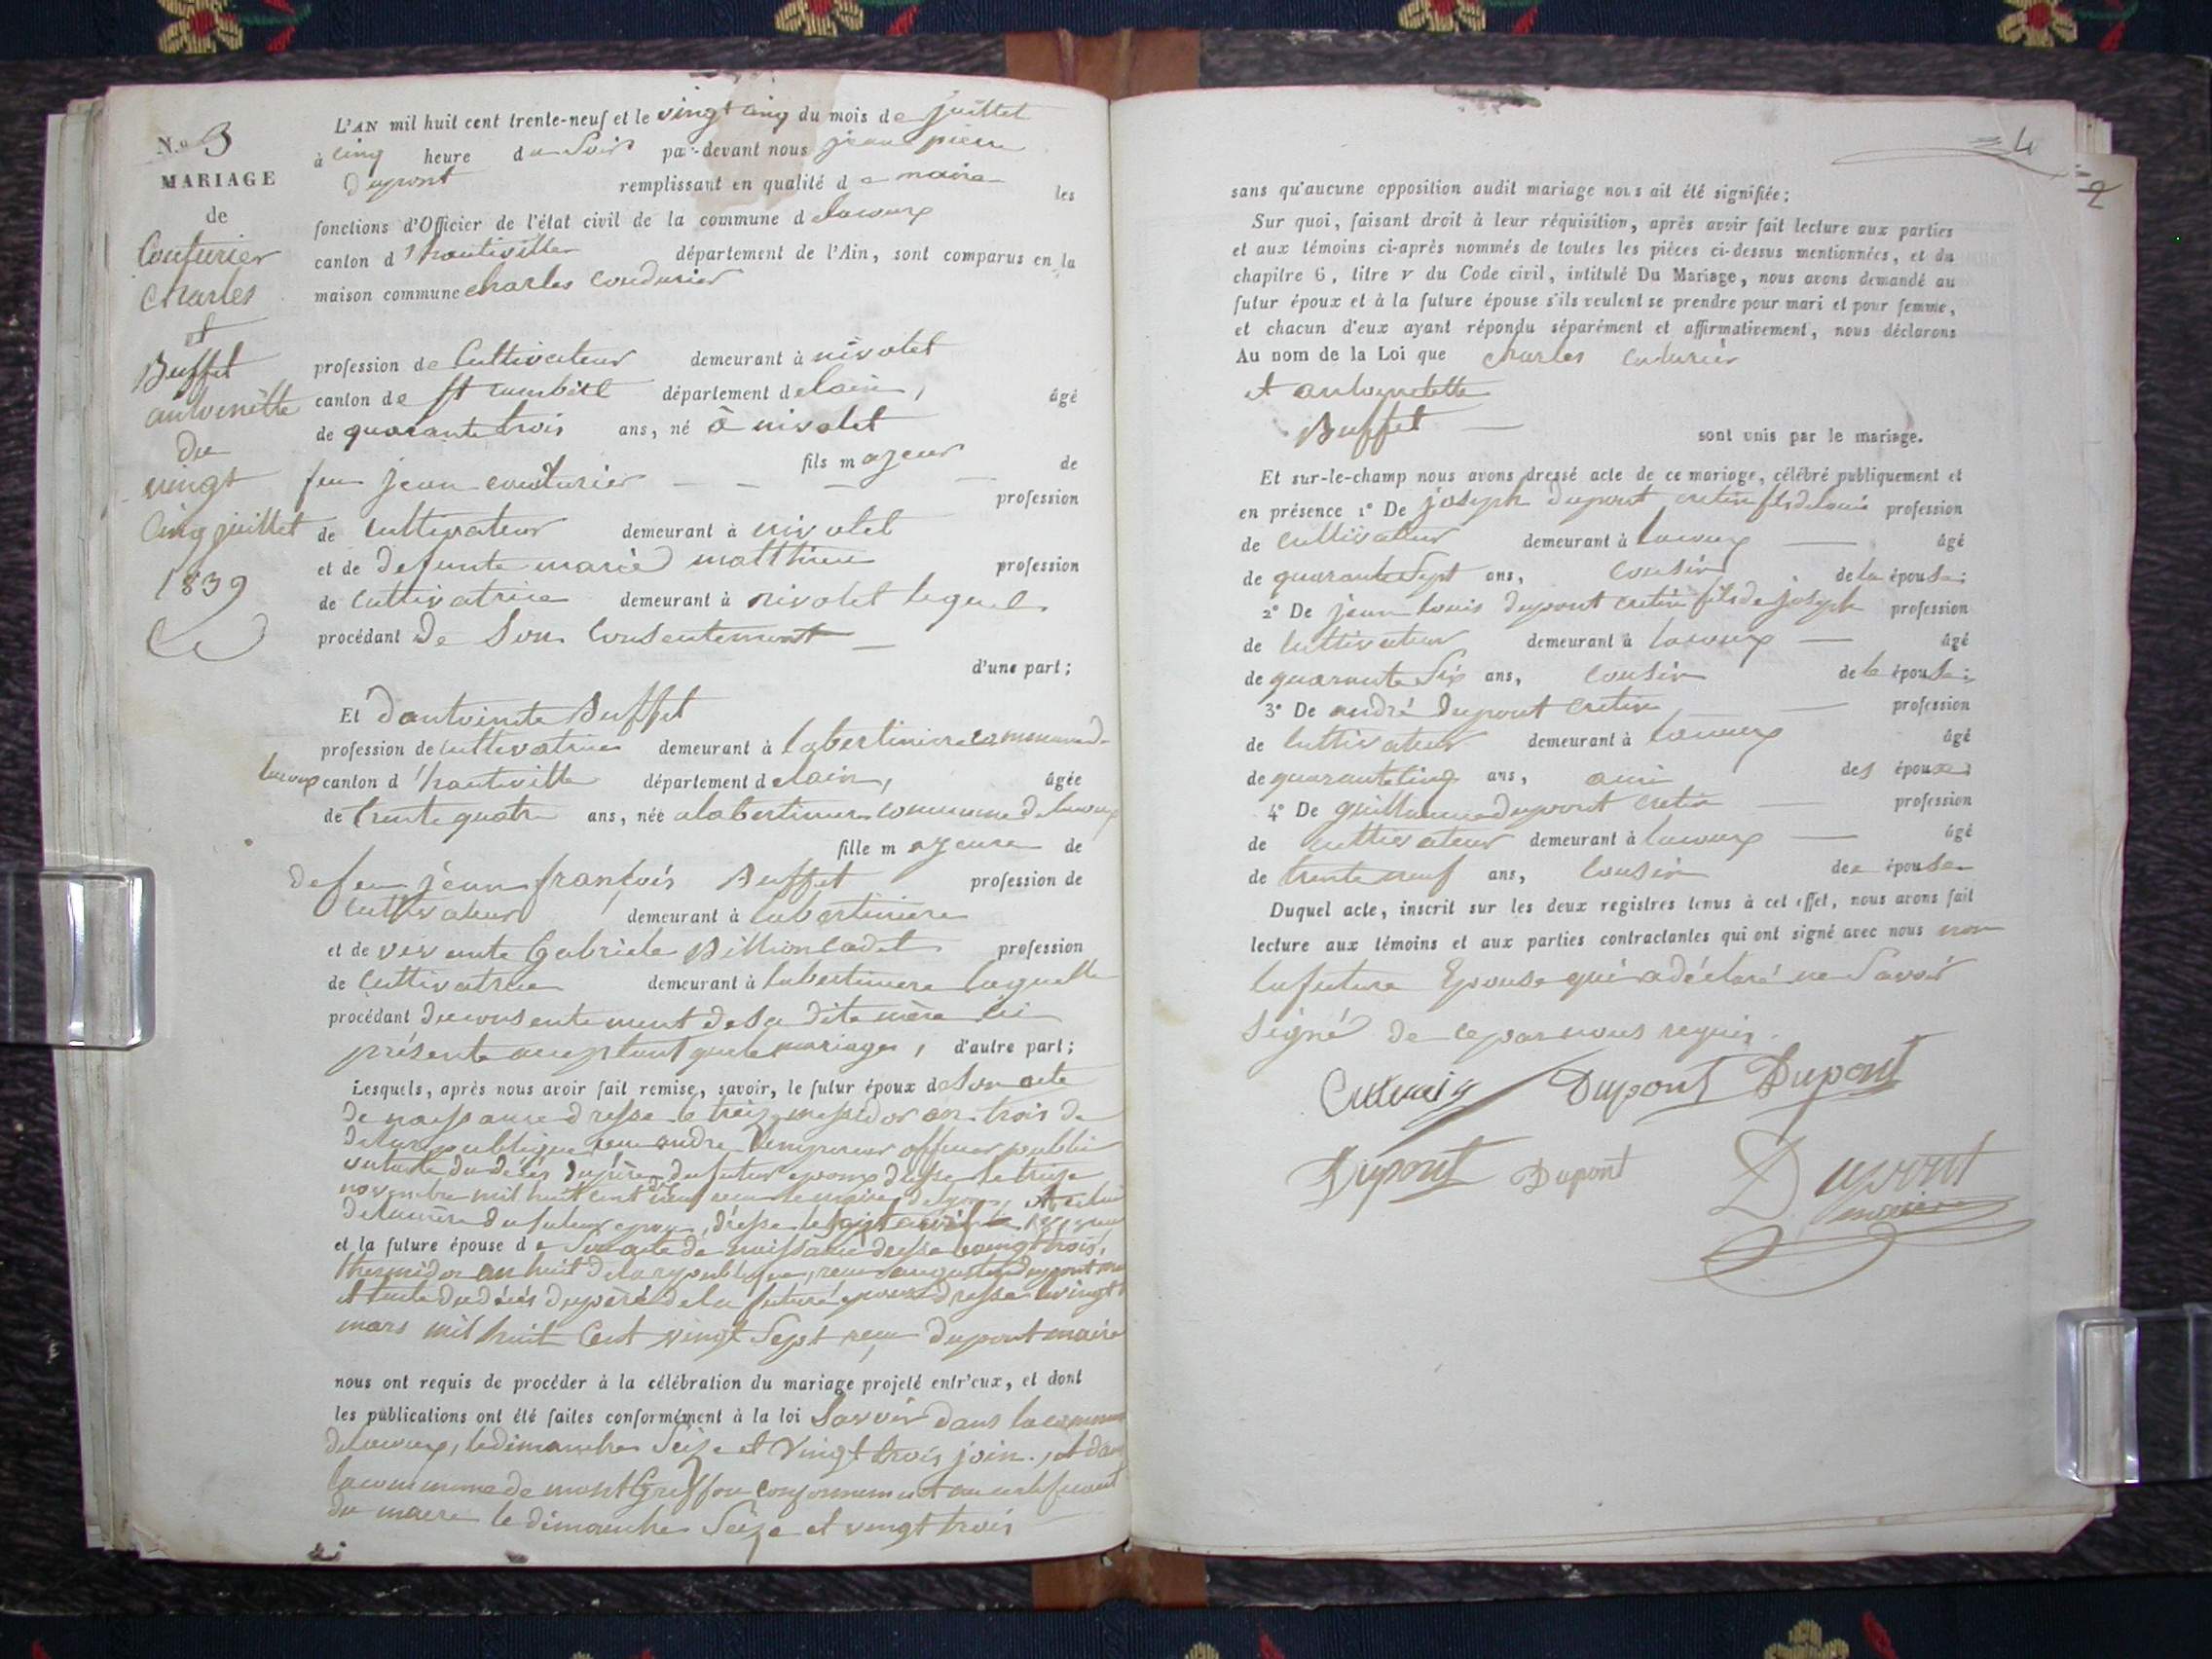 N.º 3
MARIAGE
de
Couturier
charles
et
Buffet
antoinette
du
vingt
cinq juillet
1839
L'AN mil huit cent trente-neuf et le vingt cinq du mois de juillet
à cinq heure du soir par-devant nous jean pierre
Dupont remplissant en qualité de maire les
fonctions d'Officier de l'état civil de la commune de lacoux
canton d'hauteville département de l'Ain, sont comparus en la
maison commune charles Coudurier
profession de Cultivateur demeurant à nivolet
canton de st rambert département de lain, âgé
de quarante trois ans, né à nivolet
fils majeur de
feu jean couturier profession
de cultivateur demeurant à nivolet
et de defunte marie matthieu profession
de cultivatrice demeurant à nivolet lequel
procédant De Son Consentement
d'une part;
Et dantoinete Buffet
profession de cultivatrice demeurant à labertiniere commune d
lacoux canton d'hauteville département de lain, âgée
de trente quatre ans, née a labertiniere commune de lacoux
fille majeure de
de feu jean françois Buffet profession de
Cultivateur demeurant à labertiniere
et de vivante Gabriele Billioncadet profession
de Cultivatrice demeurant à labertiniere laquelle
procédant du consentement de sa dite mère ici
présente acceptant que le mariage, d'autre part;
Lesquels, après nous avoir fait remise, savoir, le futur époux de Son acte
de naissance dressé le treize messidor an trois de
de la republique, reçu andre officier public
du décés du père du futur epoux dressé le treize
novembre mil huit cent reçu le maire de
de la mère du futur epoux, dressé le sept avril
et la future épouse de Son acte de naissance dressé le vingt trois
thermidor an huit de la republique, reçu augustin dupont
et lacte du décés du père de la future epouse dressé le vingt
mars mil huit Cent vingt Sept reçu Dupont maire
nous ont requis de procéder à la célébration du mariage projeté entr'eux, et dont
les publications ont été faites conformément à la loi Savoir dans la commune
de lacoux, le dimanche Seize et Vingt trois join, et dans
la commune de montGriffon conformement au certificat
du maire le dimanche Seize et vingt trois
4
2
sans qu'aucune opposition audit mariage nous ait été signifiée;
Sur quoi, faisant droit à leur réquisition, après avoir fait lecture aux parties
et aux témoins ci-après nommés de toutes les pièces ci-dessus mentionnées, et du
chapitre 6, titre v du Code civil, intitulé Du Mariage, nous avons demandé au
futur époux et à la future épouse s'ils veulent se prendre pour mari et pour femme,
et chacun d'eux ayant répondu séparément et affirmativement, nous déclarons
Au nom de la Loi que charles couturier
et antoinette
Buffet
sont unis par le mariage.
Et sur-le-champ nous avons dressé acte de ce mariage, célébré publiquement et
en présence 1º De joseph dupont cretin fils de louis profession
de cultivateur demeurant à lacoux âgé
de quarante Sept ans, cousin de la épouse;
2º De jean louis dupont cretin fils de joseph profession
de cultivateur demeurant à lacoux âgé
de quarante Six ans, cousin de la épouse;
3º De andré dupont cretin profession
de cultivateur demeurant à lacoux âgé
de quarante cinq ans, ami des époux;
4º De guillaume dupont cretin profession
de cultivateur demeurant à lacoux âgé
de trente neuf ans, cousin de épouse
Duquel acte, inscrit sur les deux registres tenus à cet effet, nous avons fait
lecture aux témoins et aux parties contractantes qui ont signé avec nous non
la future Epouse qui a déclaré ne Savoir
Signé de ce par nous requis.
Dupont Dupont
Dupont Dupont Dupont
maire